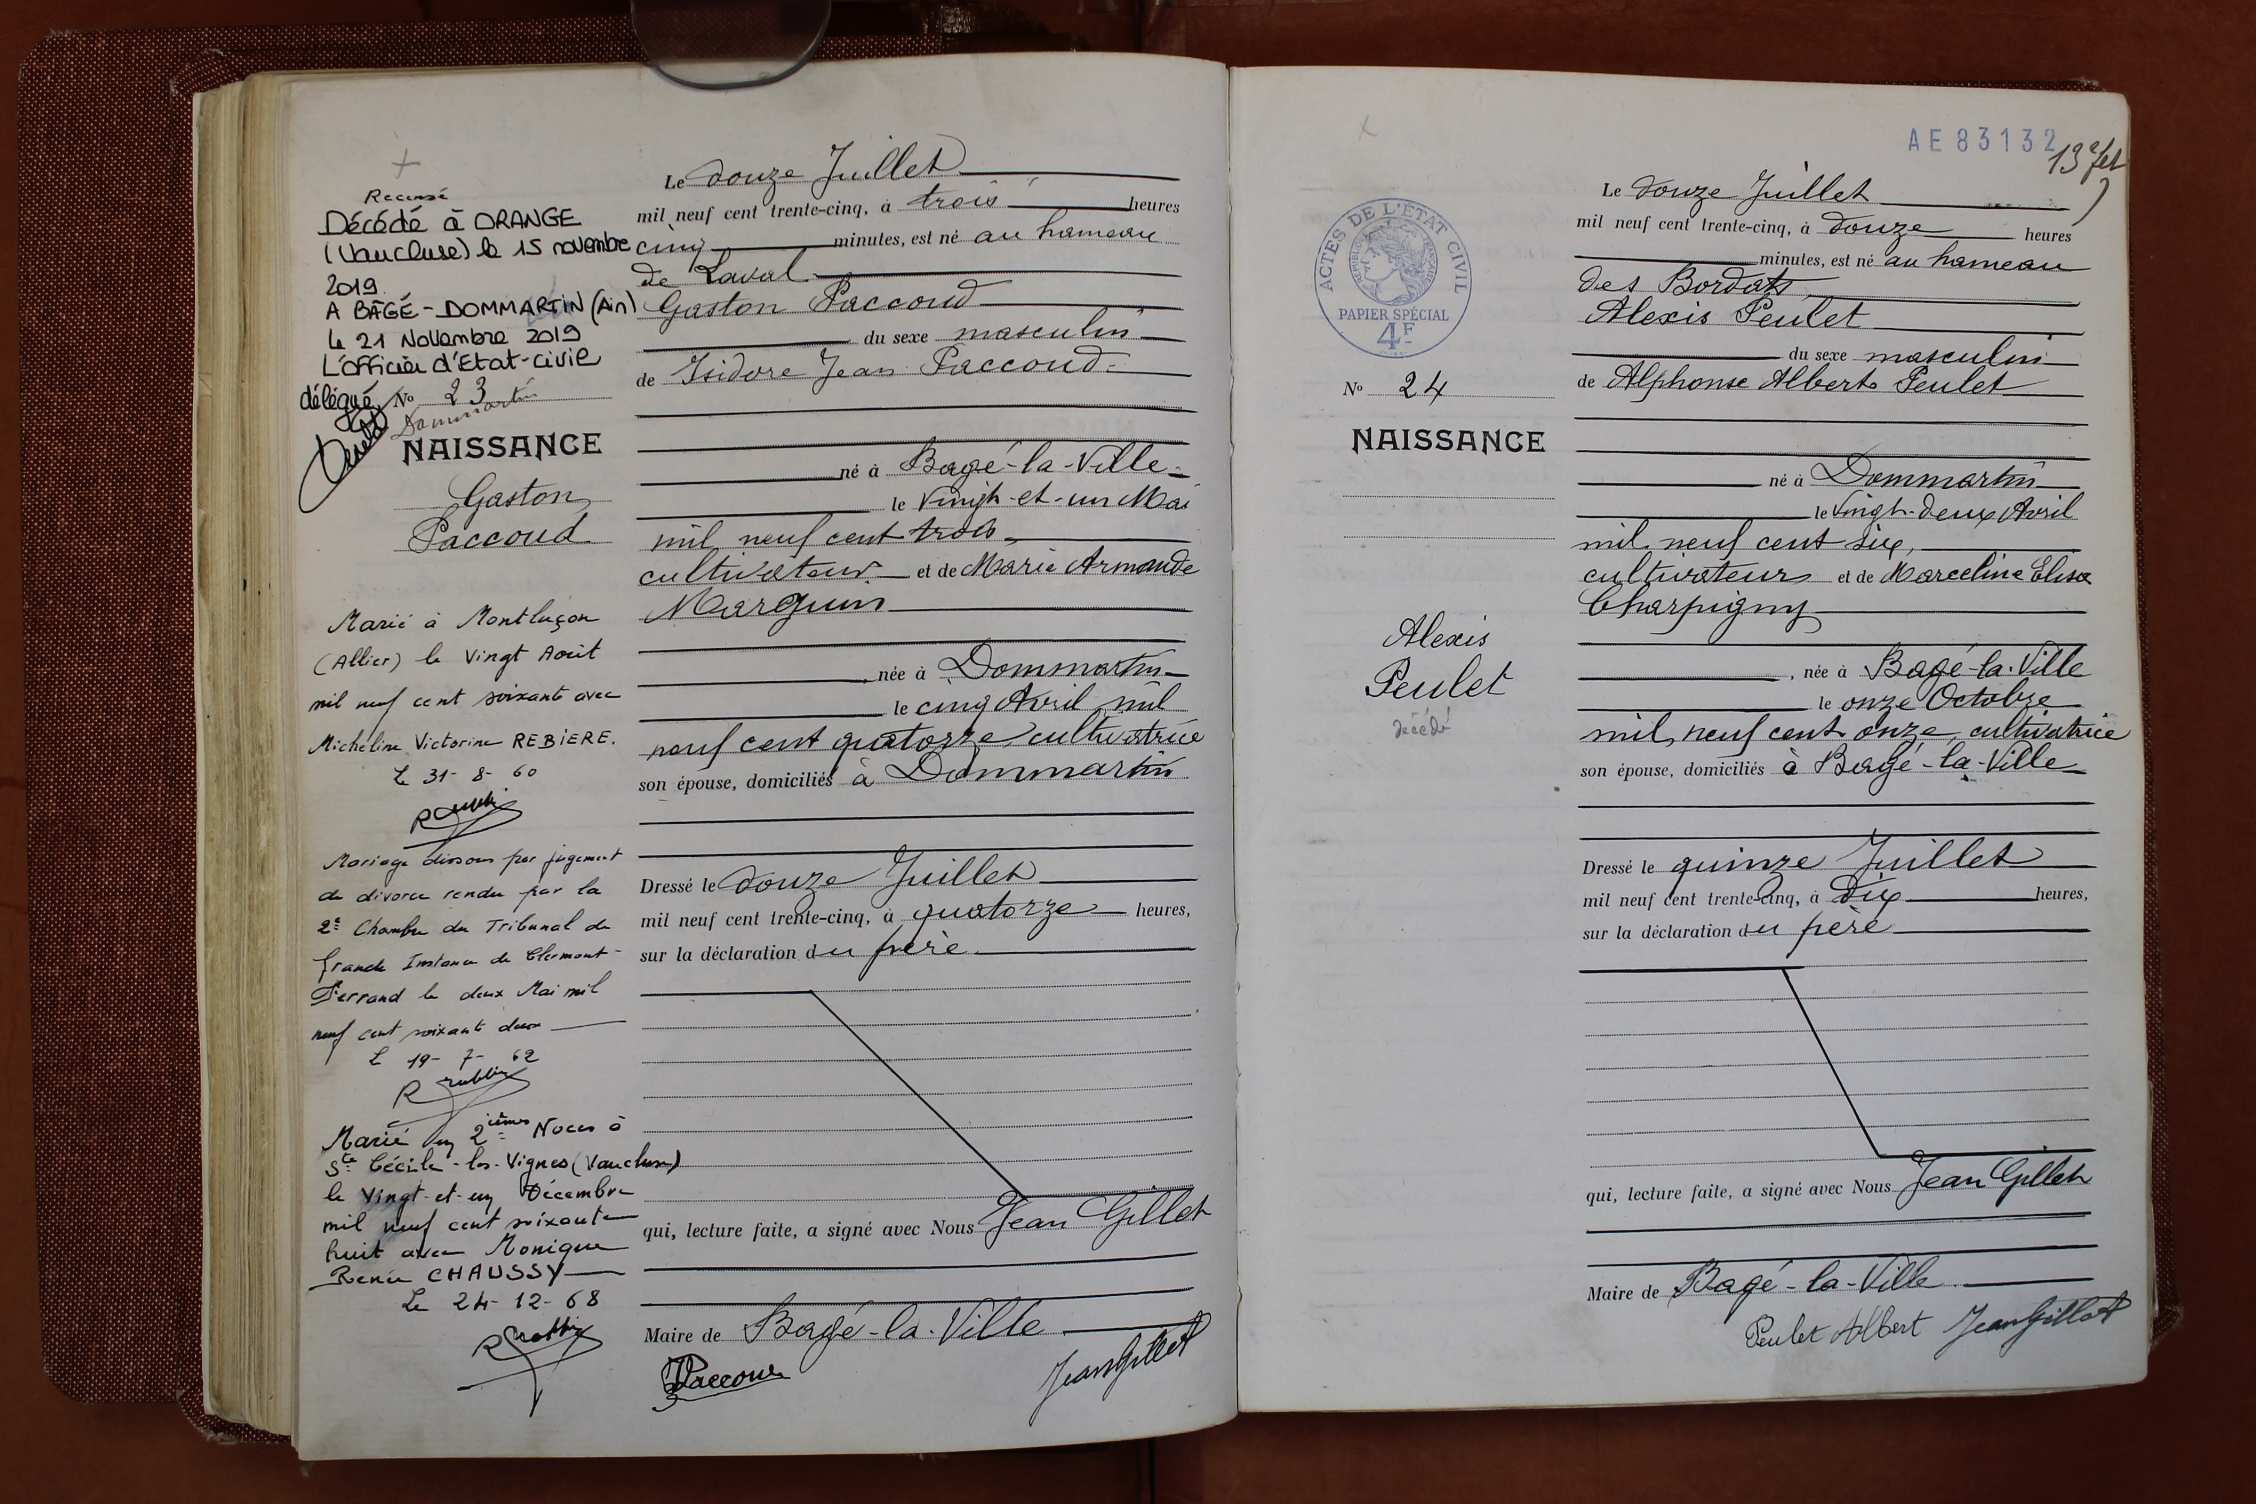 Recensé
Décédé à ORANGE
(Vaucluse) le 15 novembre
2019
A BÂGÉ-DOMMARTIN (Ain)
Le 21 Novembre 2019
L'officier d'Etat-civil
délégué
No 23
Dommartin
NAISSANCE
Gaston
Paccoud
Marié à Montluçon
(Allier) le Vingt Août
mil neuf cent soixante avec
Micheline Victorine REBIERE.
Le 31-8-60
Mariage dissous par jugement
de divorce rendu par la
2e Chambre du Tribunal de
Grande Instance de Clermont-
Ferrand le deux Mai mil
neuf cent soixante deux
Le 19-7-62
Marié en 2ièmes Noces à
Ste Cécile-les-Vignes (Vaucluse)
le Vingt-et-un Décembre
mil neuf cent soixante
huit avec Monique
Renée CHAUSSY
Le 24-12-68
Le douze Juillet
mil neuf cent trente-cinq, à trois heures
cinq minutes, est né au hameau
de Laval
Gaston Paccoud
du sexe masculin
de Isidore Jean Paccoud
né à Bagé-la-Ville
le Vingt-et-un Mai
mil neuf cent trois
cultivateur et de Marie Armande
Marguin
née à Dommartin
le cinq Avril mil
neuf cent quatorze, cultivatrice
son épouse, domiciliés à Dommartin
Dressé le douze Juillet
mil neuf cent trente-cinq, à quatorze heures,
sur la déclaration du père
qui, lecture faite, a signé avec Nous Jean Gillet
Maire de Bagé-la-Ville
Paccoud Jean Gillet
AE 83132
13e fet
ACTES DE L'ÉTAT CIVIL
RÉPUBLIQUE FRANÇAISE
PAPIER SPÉCIAL
4F
No 24
NAISSANCE
Alexis
Peulet
décédé
Le douze Juillet
mil neuf cent trente-cinq, à douze heures
minutes, est né au hameau
des Bordats
Alexis Peulet
du sexe masculin
de Alphonse Albert Peulet
né à Dommartin
le Vingt-deux Avril
mil neuf cent six,
cultivateur et de Marceline Elisa
Charpigny
, née à Bagé-la-Ville
le onze Octobre
mil neuf cent onze, cultivatrice
son épouse, domiciliés à Bagé-la-Ville
Dressé le quinze Juillet
mil neuf cent trente-cinq, à dix heures,
sur la déclaration du père
qui, lecture faite, a signé avec Nous Jean Gillet
Maire de Bagé-la-Ville
Peulet Albert Jean Gillet